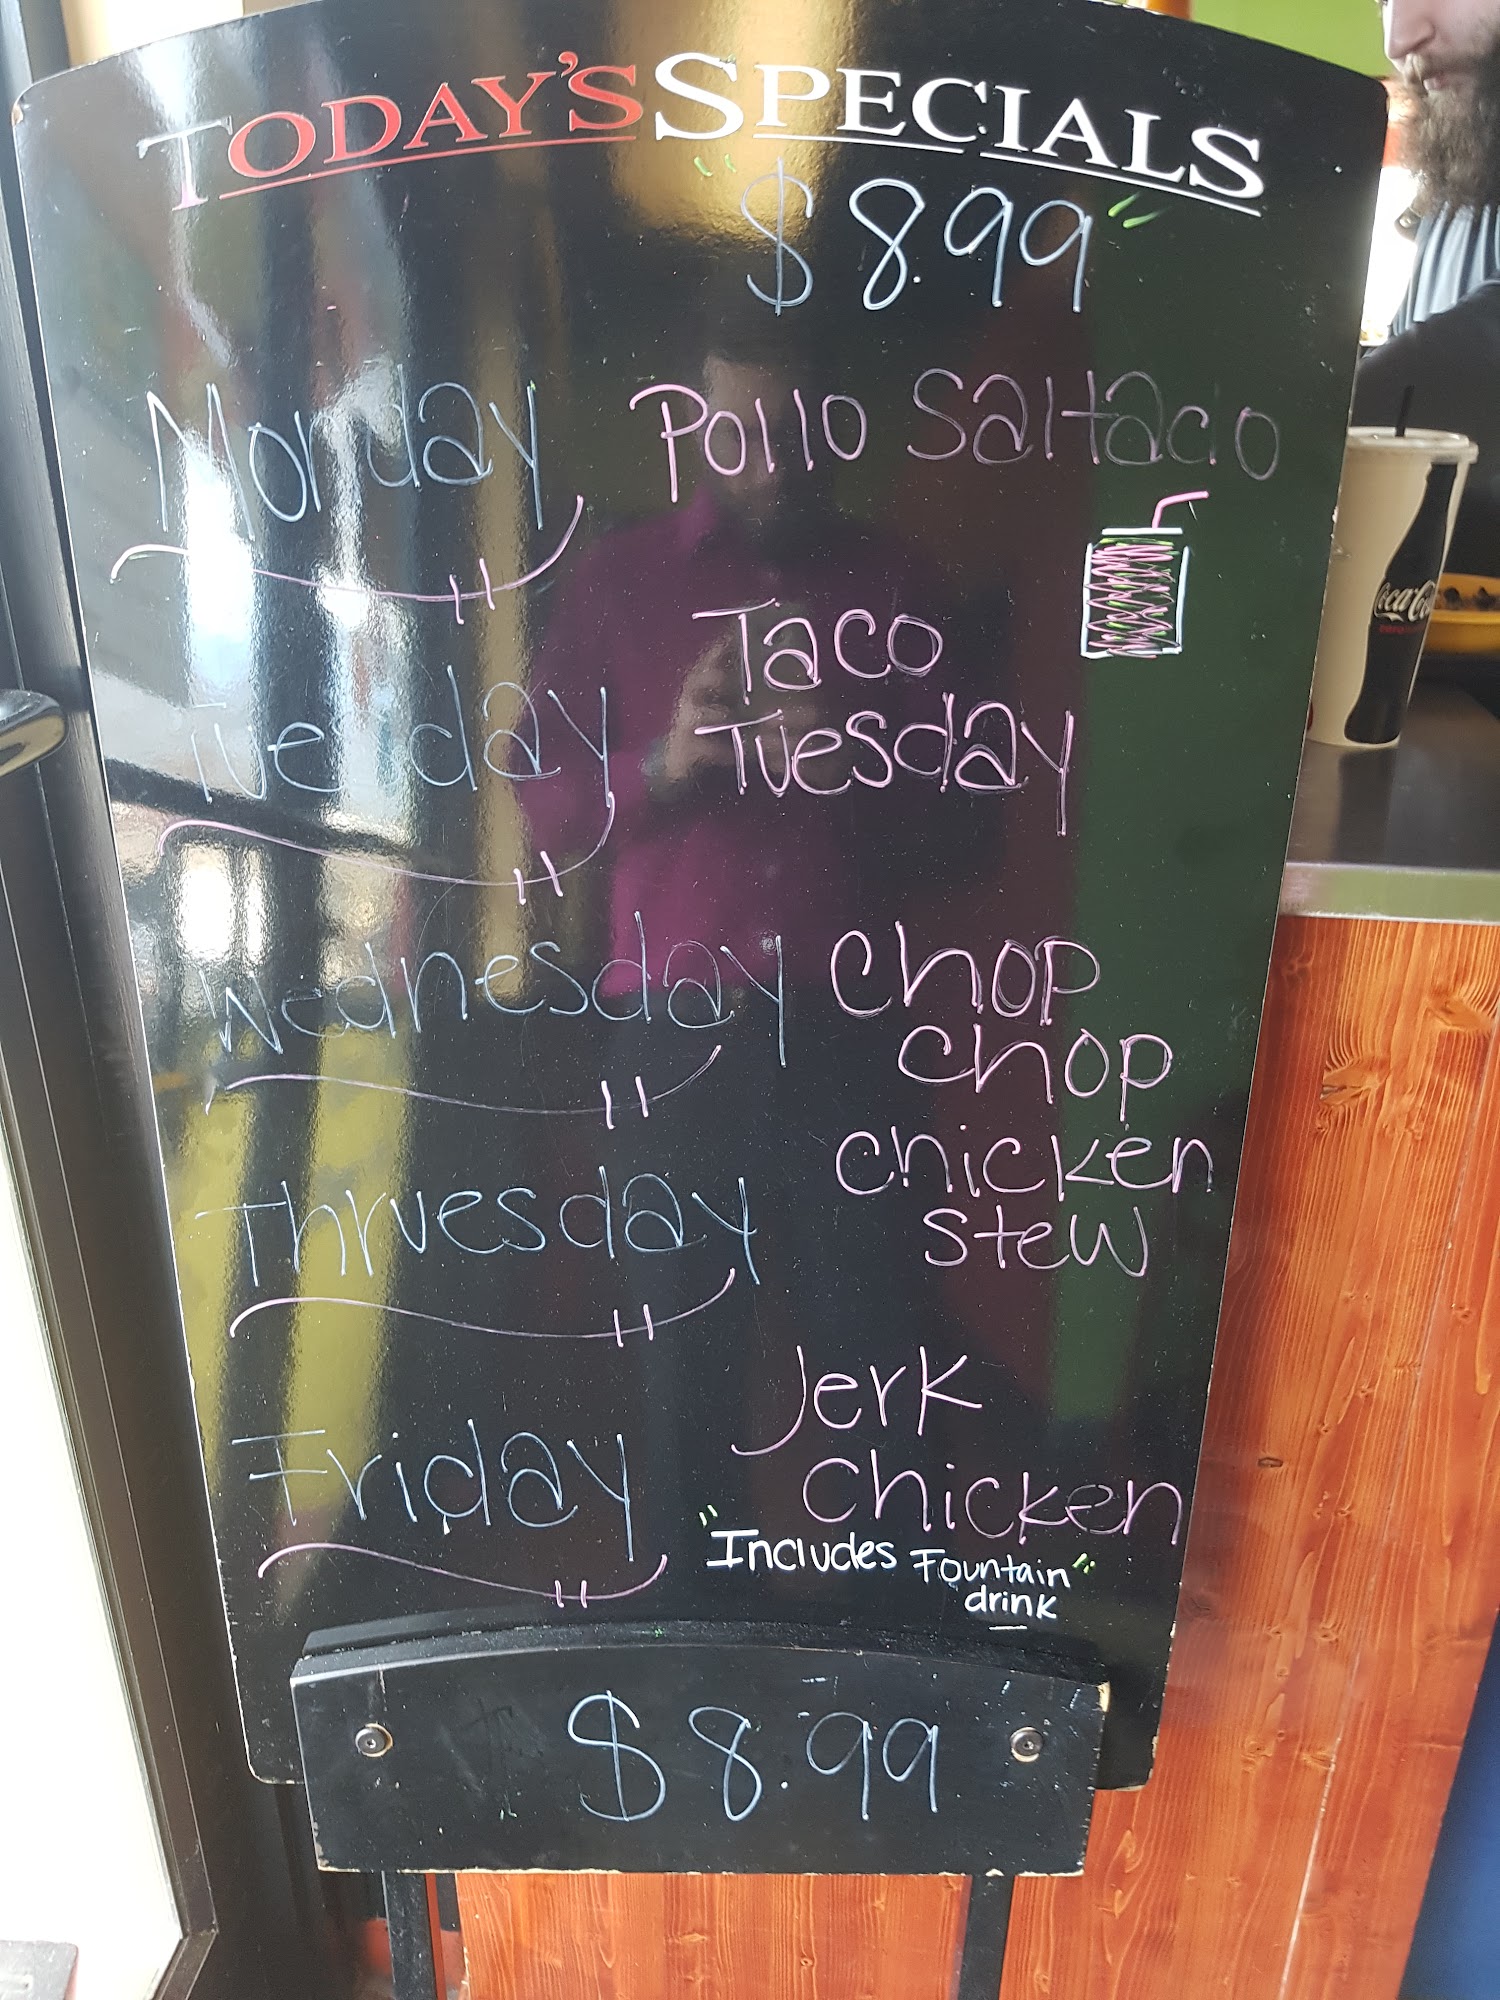 TODAY'S SPECIALS
"$8.99"
Monday Pollo Saltado
Taco
Tuesday Tuesday
Wednesday Chop
Chop
Chicken
Thruesday Stew
Jerk
Friday Chicken
"Includes Fountain"
drink
$8.99
Coca-Co